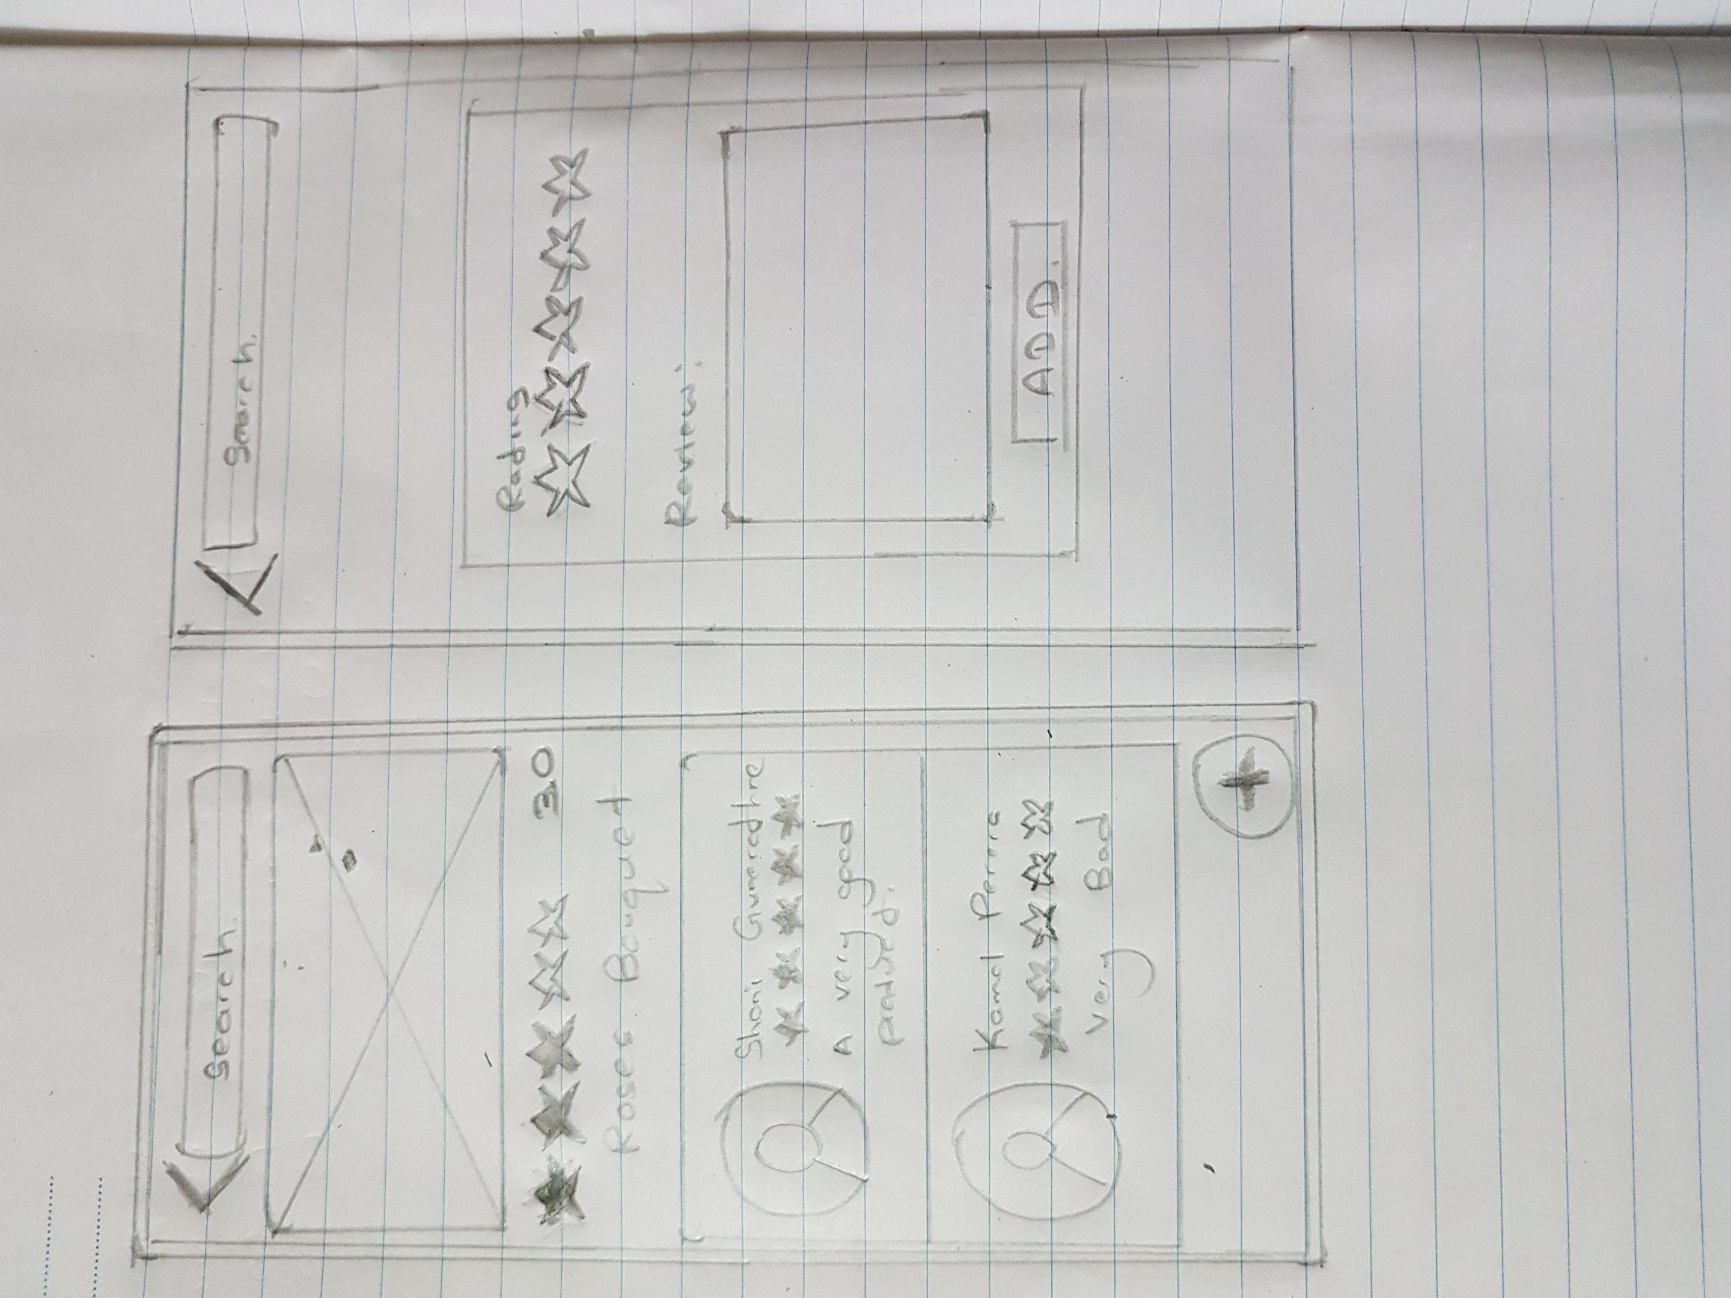 Search.
3.0
Roses Bouquet
Shani Gunaradhne
A very good
product.
Kamal Perera
Very Bad
+
Search.
Rading
Review:
ADD.